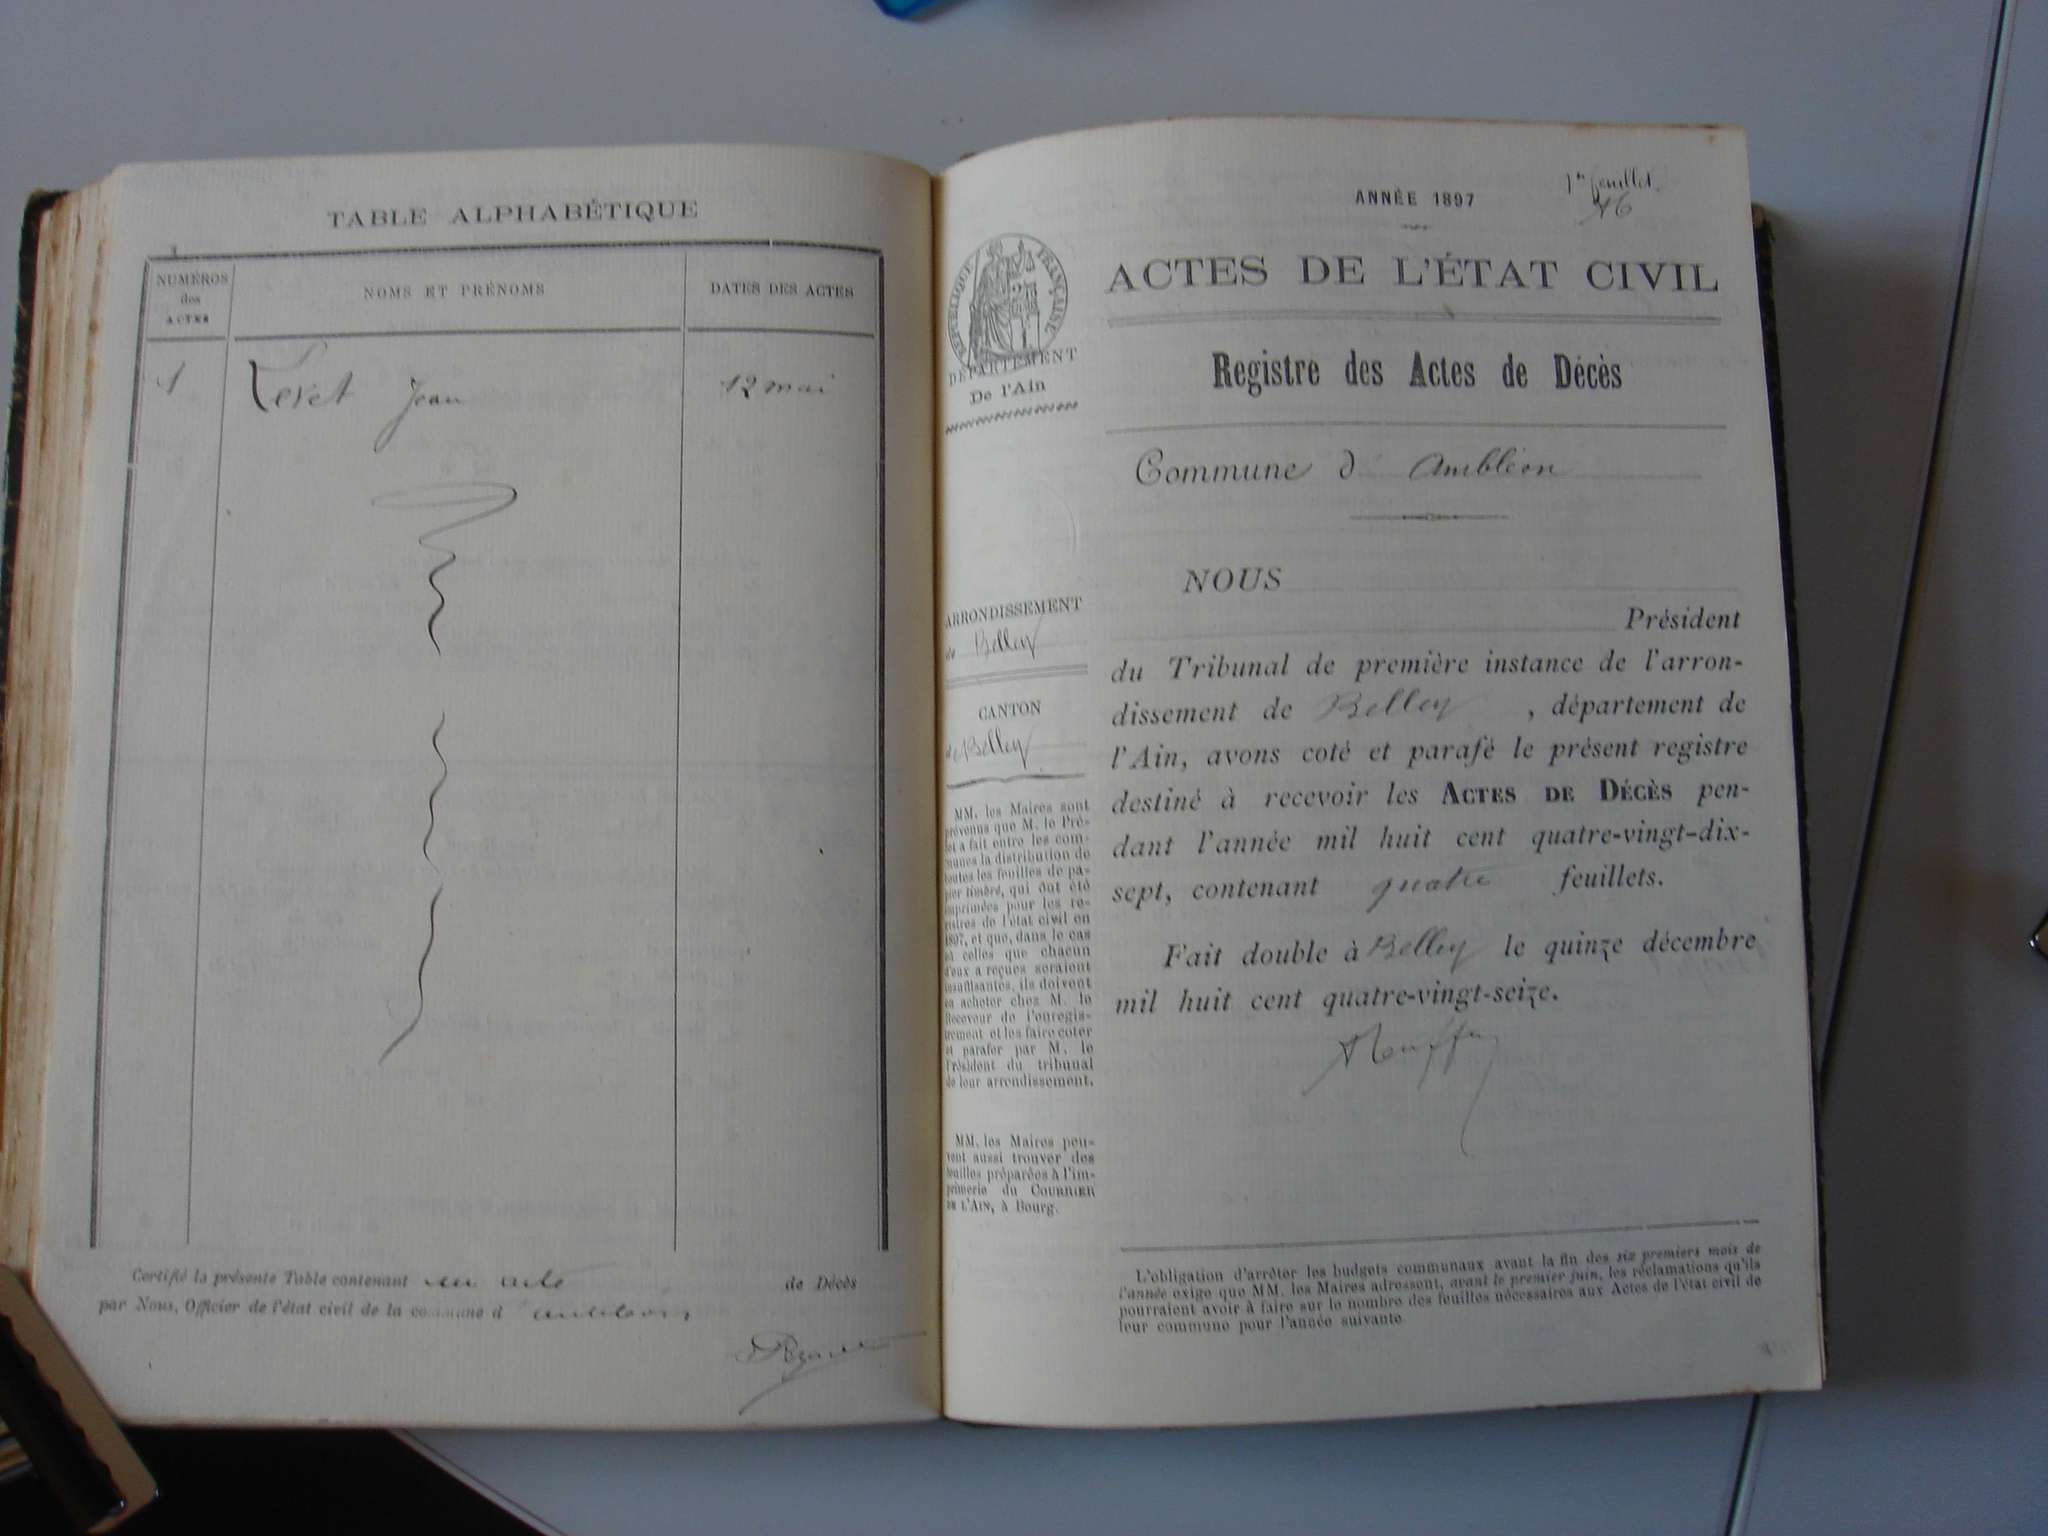 TABLE ALPHABÉTIQUE
NUMÉROS
des
ACTES
NOMS ET PRÉNOMS
DATES DES ACTES
1
Jean
12 mai
Certifié la présente Table contenant un acte de Décès
par Nous, Officier de l'état civil de la commune d'Ambléon
1er feuillet
ANNÉE 1897
RÉPUBLIQUE FRANÇAISE
DÉPARTEMENT
De l'Ain
ACTES DE L'ÉTAT CIVIL
Registre des Actes de Décès
Commune d' Ambléon
ARRONDISSEMENT
de Belley
CANTON
de Belley
MM. les Maires sont
prévenus que M. le Pré-
fet a fait entre les com-
munes la distribution de
toutes les feuilles de pa-
pier timbré, qui ont été
imprimées pour les re-
gistres de l'état civil en
1897, et que, dans le cas
où celles que chacun
d'eux a reçues seraient
insuffisantes, ils doivent
en acheter chez M. le
Receveur de l'enregis-
trement et les faire coter
et parafer par M. le
Président du tribunal
de leur arrondissement.
MM. les Maires peu-
vent aussi trouver des
feuilles préparées à l'im-
primerie du COURRIER
DE L'AIN, à Bourg.
NOUS
Président
du Tribunal de première instance de l'arron-
dissement de Belley , département de
l'Ain, avons coté et parafé le présent registre
destiné à recevoir les ACTES DE DÉCÈS pen-
dant l'année mil huit cent quatre-vingt-dix-
sept, contenant quatre feuillets.
Fait double à Belley le quinze décembre
mil huit cent quatre-vingt-seize.
L'obligation d'arrêter les budgets communaux avant la fin des six premiers mois de
l'année exige que MM. les Maires adressent, avant le premier juin, les réclamations qu'ils
pourraient avoir à faire sur le nombre des feuilles nécessaires aux Actes de l'état civil de
leur commune pour l'année suivante